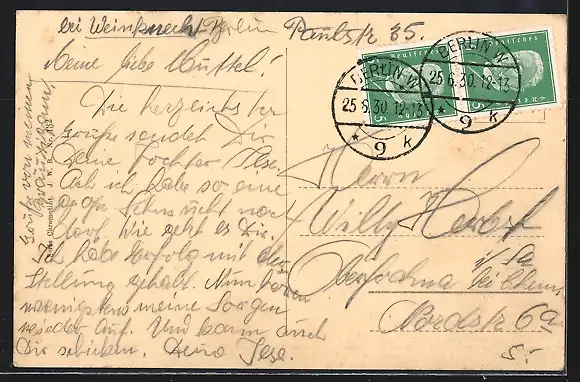 bei Weinknecht Berlin Paulstr 35.
Meine liebe Muttel!
Die herzlichsten
Grüße sendet Dir
Deine Tochter Ilse.
Ach ich habe so eine
große Sehnsucht nach
dorf. Wie geht es Dir.
Ich habe Erfolg mit der
Stellung gehabt. Nun hören
wenigstens meine Sorgen
wieder auf. Und kann auch
Dir schicken. Deine Ilse.
Grüße von meinen
Deutsches Reich
BERLIN W
25.6.30.12-13
* 9 k
BERLIN W
25.6.30.12-13
* 9 k
Herrn
Willy Herbst
i/Sa
Oberfrohna bei Chemn.
Nordstr 69
5.-